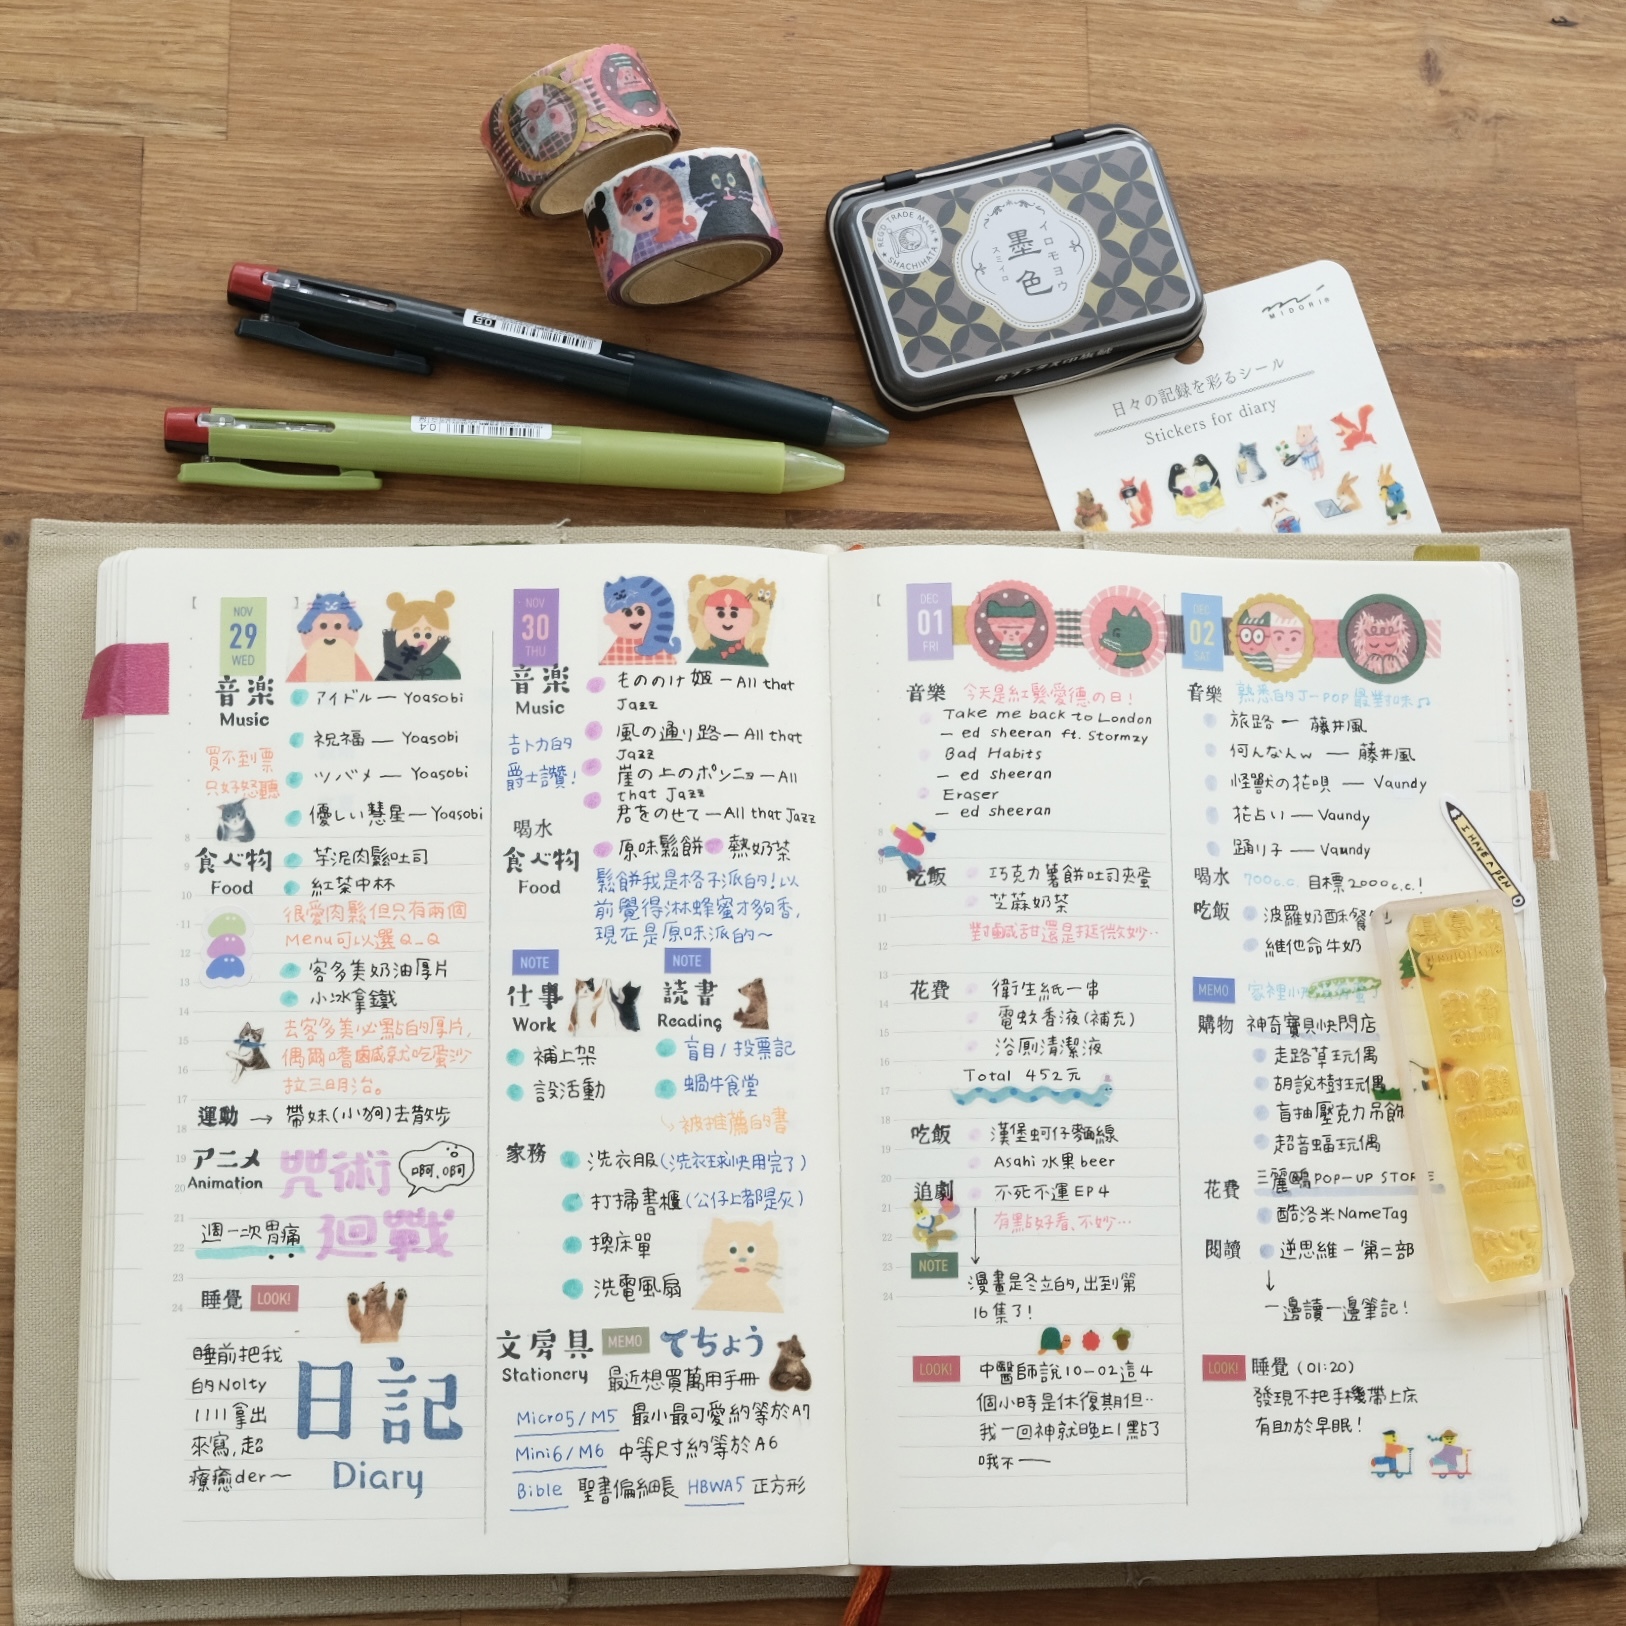 0.5
0.4
REG'D TRADE MARK
SHACHIHATA
イロモヨウ
墨色
スミイロ
MIDORI
日々の記録を彩るシール
Stickers for diary
NOV
29
WED
音楽
Music
アイドル — Yoasobi
祝福 — Yoasobi
ツバメ — Yoasobi
優しい彗星 — Yoasobi
買不到票
只好怒聽
食べ物
Food
芋泥肉鬆吐司
紅茶中杯
很愛肉鬆但只有兩個
Menu可以選Q_Q
客多美奶油厚片
小冰拿鐵
去客多美必點的厚片,
偶爾嗜鹹就吃蛋沙
拉三明治。
運動 → 帶妹(小狗)去散步
アニメ
Animation
咒術
迴戰
啊,啊
週一次胃痛
睡覺 LOOK!
睡前把我
的Nolty
1111拿出
來寫,超
療癒der~
日記
Diary
NOV
30
THU
音楽
Music
もののけ姫 — All that
Jazz
風の通り路 — All that
Jazz
崖の上のポンニョ — All
that Jazz
君をのせて — All that Jazz
吉卜力的
爵士讚!
喝水
食べ物
Food
原味鬆餅 熱奶茶
鬆餅我是格子派的!以
前覺得淋蜂蜜才夠香,
現在是原味派的~
NOTE
仕事
Work
補上架
設活動
NOTE
読書
Reading
盲目/投票記
蝸牛食堂
被推薦的書
家務
洗衣服(洗衣球快用完了)
打掃書櫃(公仔上都是灰)
換床單
洗電風扇
文房具
Stationery
MEMO てちょう
最近想買萬用手冊
Micro5/M5 最小最可愛約等於A7
Mini6/M6 中等尺寸約等於A6
Bible 聖書偏細長 HBWA5 正方形
DEC
01
FRI
音樂 今天是紅髮愛德の日!
Take me back to London
— ed sheeran ft. Stormzy
Bad Habits
— ed sheeran
Eraser
— ed sheeran
吃飯 巧克力薯餅吐司夾蛋
芝蔴奶茶
對鹹甜還是挺微妙…
花費 衛生紙一串
電蚊香液(補充)
浴廁清潔液
Total 452元
吃飯 漢堡蚵仔麵線
Asahi 水果beer
追劇 不死不運EP4
有點好看、不妙…
NOTE
漫畫是冬立的,出到第
16集了!
LOOK! 中醫師說10-02這4
個小時是休復期但…
我一回神就晚上1點了
哦不——
DEC
02
SAT
音樂 熟悉的J-POP最對味♫
旅路 — 藤井風
何なんw — 藤井風
怪獸の花唄 — Vaundy
花占い — Vaundy
踊り子 — Vaundy
喝水 700c.c. 目標2000c.c.!
吃飯 波羅奶酥餐
維他命牛奶
I HAVE A PEN
MEMO 家裡小
購物 神奇寶貝快閃店
走路草玩偶
胡說樹玩偶
盲抽壓克力吊飾
超音蝠玩偶
花費 三麗鷗POP-UP STORE
酷洛米NameTag
閱讀 逆思維 — 第二部
↓
一邊讀一邊筆記!
LOOK! 睡覺 (01:20)
發現不把手機帶上床
有助於早眠!